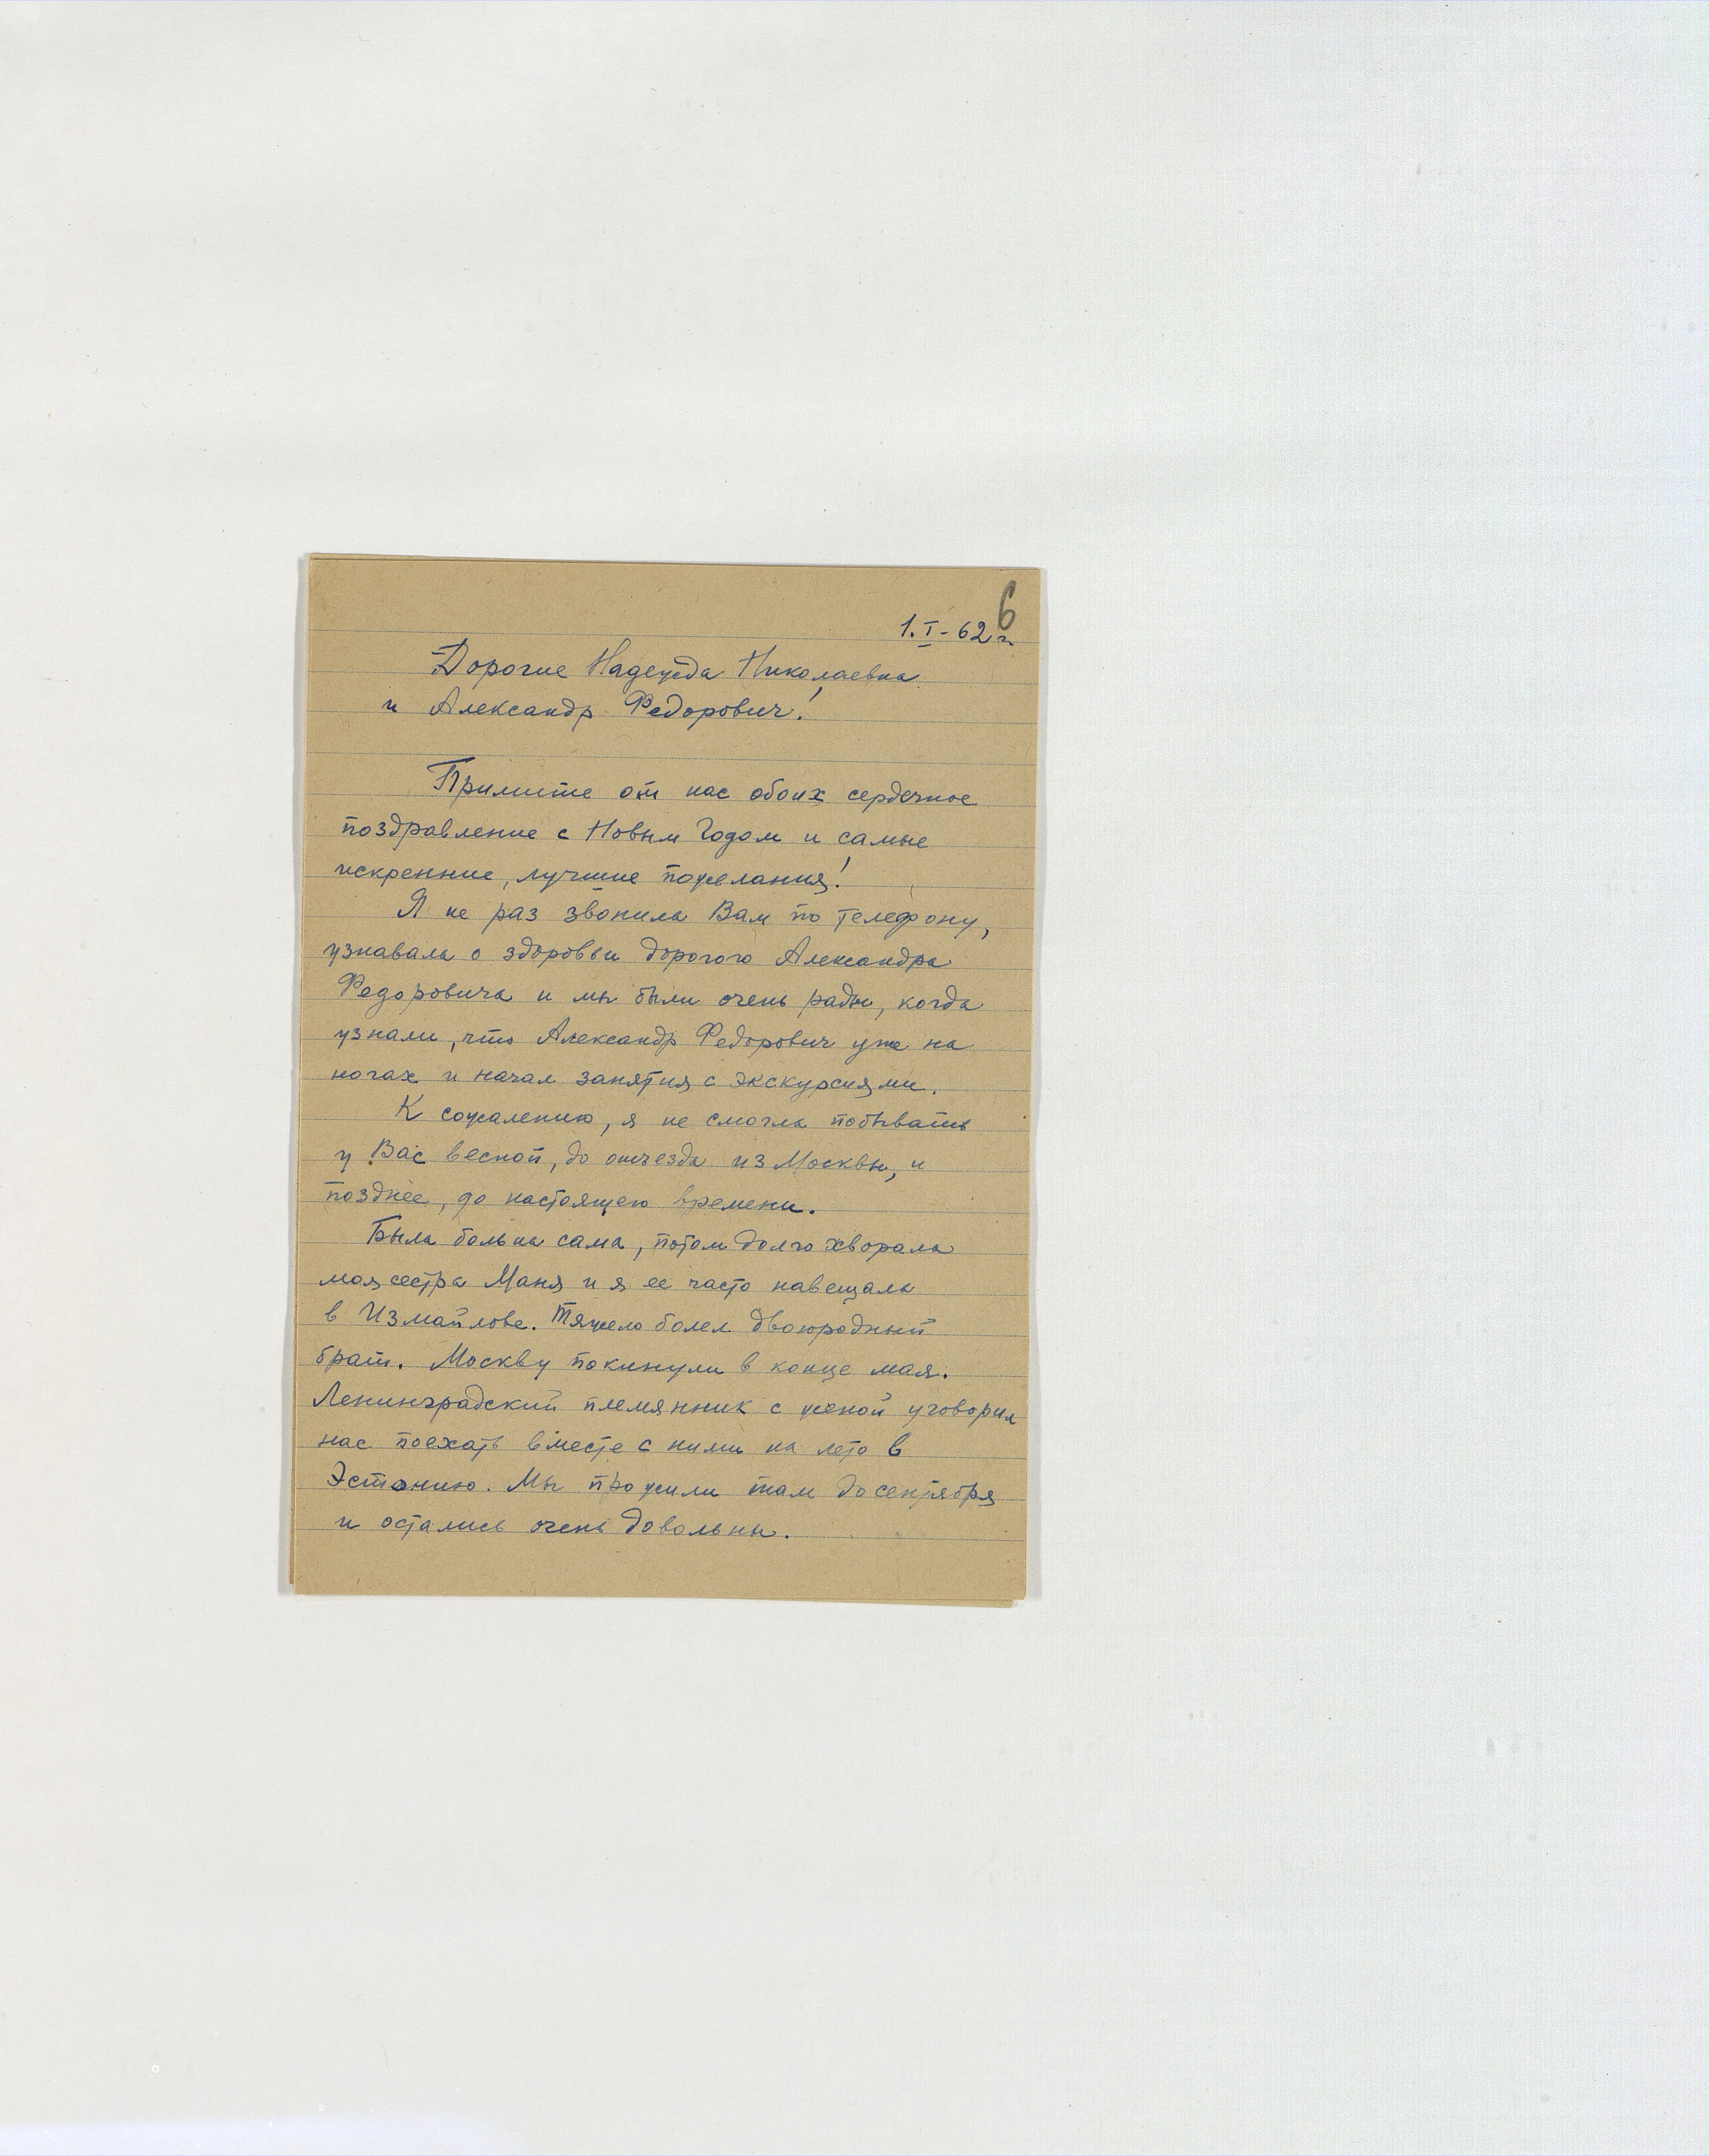 6
1.I-62 г.
Дорогие Надежда Николаевна
и Александр Федорович!
Примите от нас обоих сердечное
поздравление с Новым Годом и самые
искренние, лучшие пожелания!
Я не раз звонила Вам по телефону,
узнавала о здоровьи дорогого Александра
Федоровича и мы были очень рады, когда
узнали, что Александр Федорович уже на
ногах и начал занятия с экскурсиями.
К сожалению, я не смогла побывать
у Вас весной, до отъезда из Москвы, и
позднее, до настоящего времени.
Была больна сама, потом долго хворала
моя сестра Маня и я ее часто навещала
в Измайлове. Тяжело болел двоюродный
брат. Москву покинули в конце мая.
Ленинградский племянник с женой уговорил
нас поехать вместе с ними на лето в
Эстонию. Мы прожили там до сентября
и остались очень довольны.